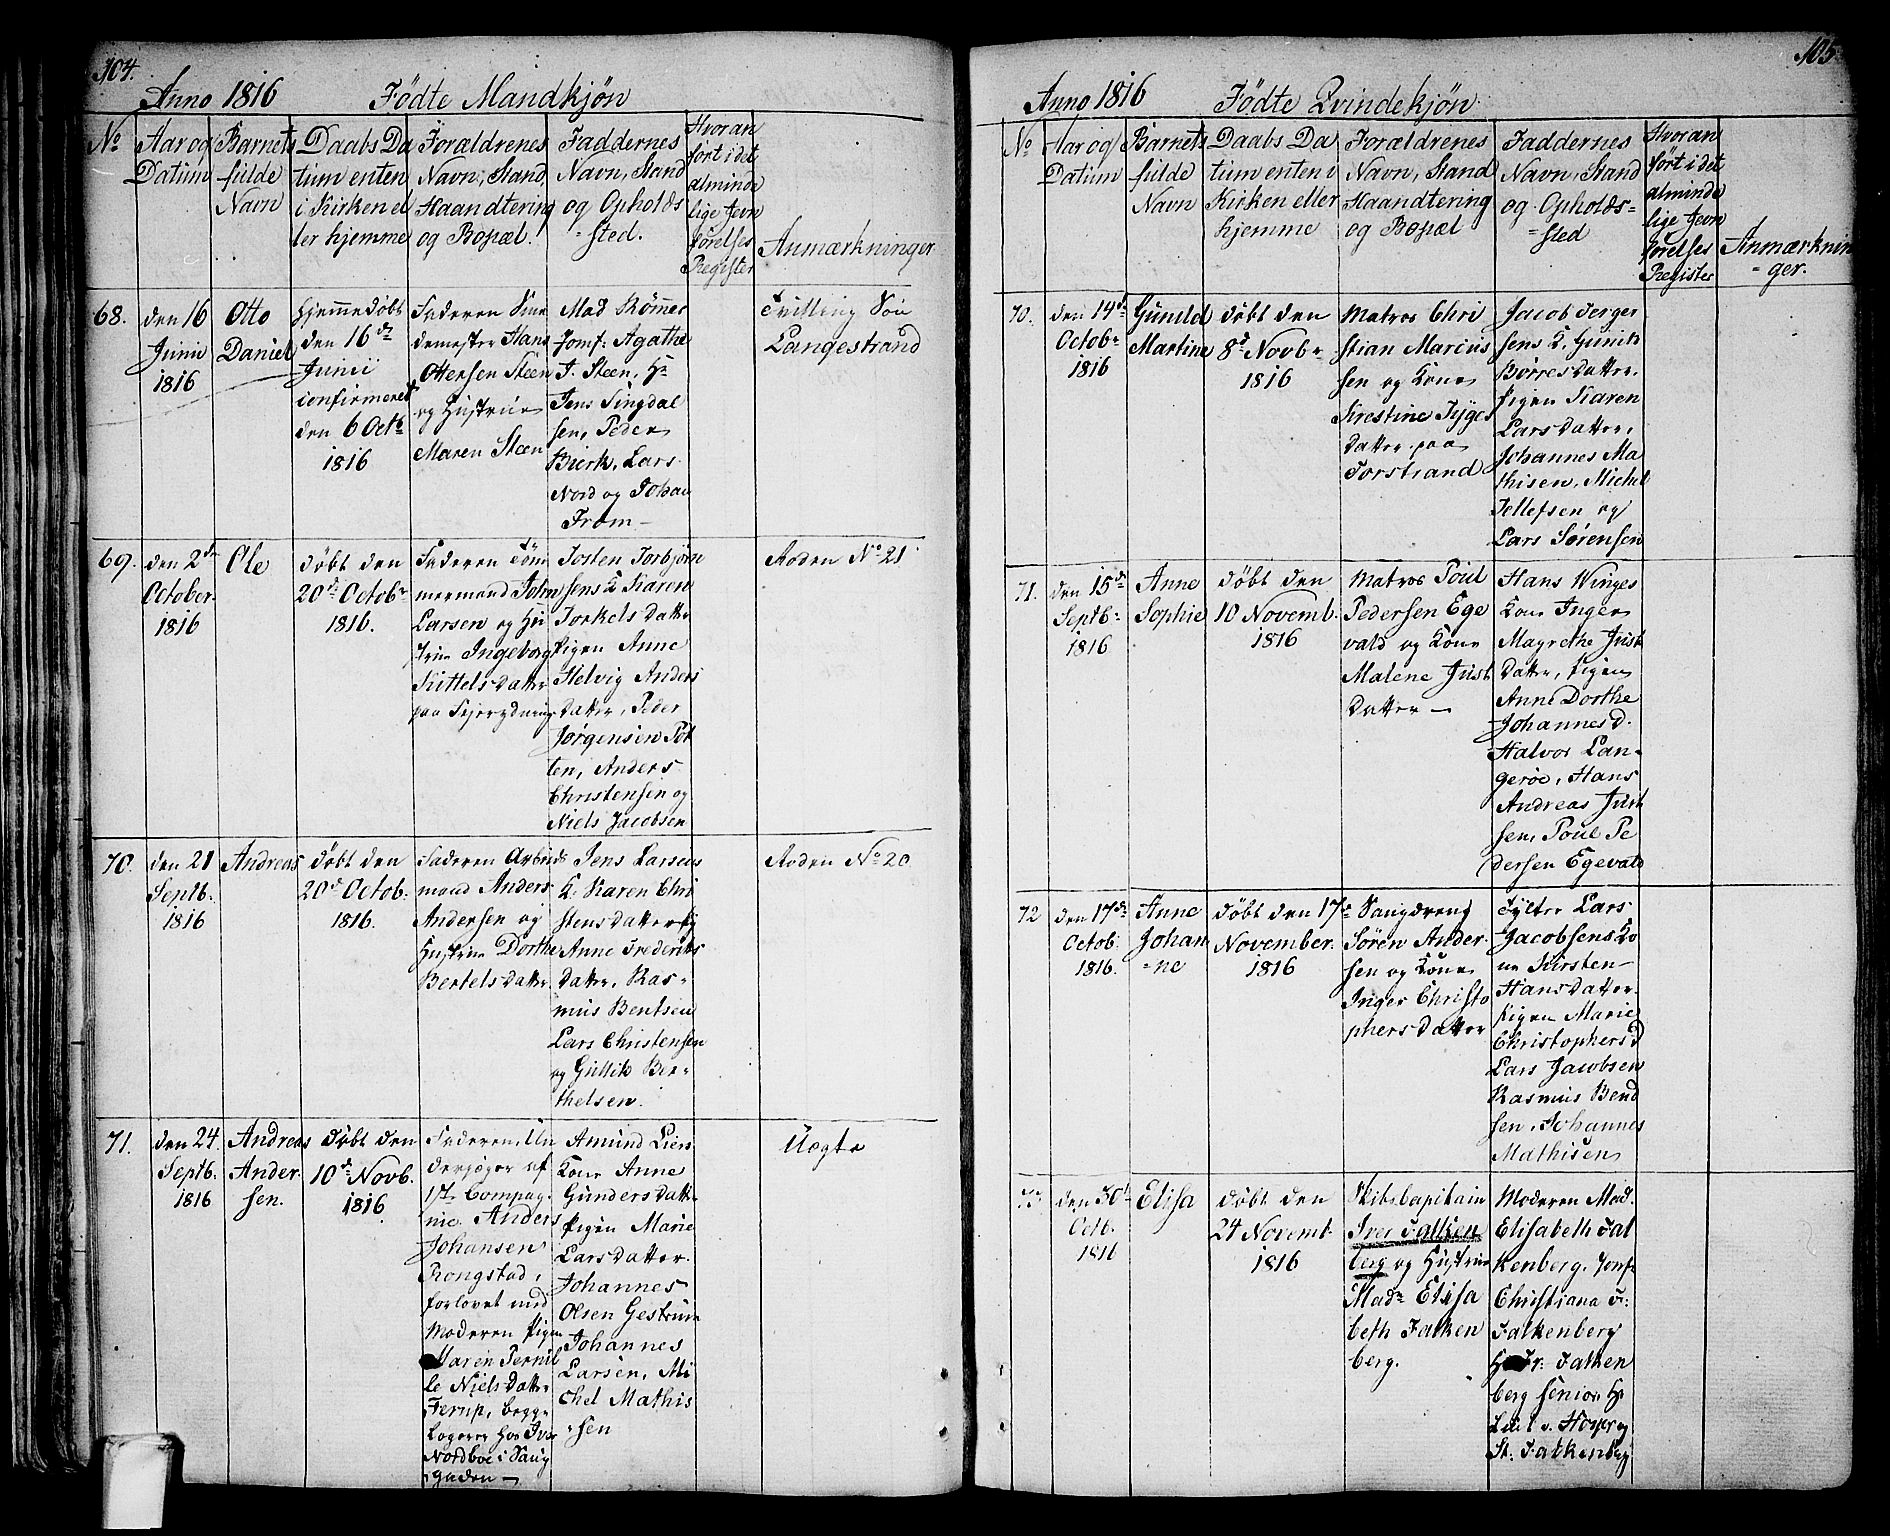 104.
Anno 1816 Fødte Mandkjøn
No
Aar og
Datum
Barnets
fulde
Navn
Daabs Da
tum enten
i Kirken el
ler hjemme
Forældrenes
Navn, Stand,
Haandtering
og Bopæl.
Faddernes
Navn, Stand
og Opholds
=sted.
Hvor an
ført i det
alminde
lige Jevn
førelses
Register
Anmærkninger
68.
den 16
Junii
1816
Otto
Daniel
hjemmedøbt
den 16de
Junii
confirmeret
den 6 Octb
1816
Faderen
Hans
Ottersen Steen
og Hustrue
Maren Steen
Mad Rømmer
Jomf: Agathe
J. Steen, Hr
Jens Singdal
sen, Peder
Bierk, Lars
Nord og Johan
From—
Tvilling Søn
Langestrand
69.
den 2de
October.
1816
Ole
døbt den
20de Octobr
1816.
Faderen Töm
mermand John
Larsen og Hu
strue Ingeborg
Kittelsdatter
paa
Josten Torbjørn
sens K Karen
Torkelsdatter
Pigen Anne
Helvig Anders
datter, Peder
Jørgensen Pot
ten, Anders
Christensen og
Niels Jacobsen
Roden No 21
70.
den 21
Septb.
1816
Andreas
døbt den
20de Octob.
1816.
Faderen Arbeids
mand Anders
Andersen og
Hustrue Dorthe
Bertelsdatter
Jens Larsens
K. Karen Chri
stensdatter Pig
Anne Frederiks
datter, Ras-
mus Bentsen
Lars Christensen
og Gullik Ber-
thelsen.
Roden No 20
71.
den 24.
Septb.
1816
Andreas
Ander
sen.
døbt den
10de Novb.
1816
Faderen, Un
derjæger af
1ste Compag
nie. Anders
Johansen
Rongstad,
forlovet med
Moderen Pigen
Maren Pernil
le Nielsdatter
Ferup, begge
Logerer hos Iver
Nordboe i Laug
gaden—
Amund Lien
Kone Anne
Gundersdatter
Pigen Marie
Larsdatter.
Johannes
Olsen Gestrum
Johannes
Larsen, Mi
chel Mathis
=sen
Uægte
105.
Anno 1816 Fødte Qvindekjøn
No
Aar og
Datum
Barnets
fulde
Navn
Daabs Da
tum enten i
Kirken eller
hjemme
Forældrenes
Navn, Stand
Haandtering
og Bopæl
Faddernes
Navn, Stand
og Opholds=
=sted
Hvor an
ført i det
alminde
lige Jevn
førelses
Register
Anmærknin
=ger.
70.
den 14de
Octobr
1816
Gunild
Martine
døbt den
8de Novbr
1816
Matros Chri
stian Marcus
sen og Kone
Kirestine Tyges
datter paa
Torstrand
Jacob Jerger
sens K. Gunild
Børresdatter,
Pigen Karen
Larsdatter,
Johannes Ma
thisen, Michel
Tellefsen og
Lars Sørensen
71.
den 15de
Septb:
1816
Anne
Sophie
døbt den
10 Novemb.
1816
Matros Poul
Pedersen Ege
vald og Kone
Malene Just
datter —
Hans Winges
Kone Inger
Magrethe Just
datter, Pigen
Anne Dorthe
Johannesd.
Halvor Lan-
gerøe, Hans
Andreas Just
sen, Poul Pe
dersen Egevald
72
den 17de
Octob.
1816.
Anne
Johan
=ne
døbt den 17de
November.
1816
Søren Ander
sen og Kone
Inger Christo
phersdatter
Fylter Lars
Jacobsens Ko
ne Kirsten
Hansdatter.
Pigen Marie
Christophersd
Lars Jacobsen
Rasmus Bend
sen, Johannes
Mathisen
73
den 30te
Octb.
1816
Elisa
døbt den
24 Novemb.
1816
Skibscapitain
Iver Falken
berg og Hustrue
Madm Elisa
beth Falken
berg.
Moderen Mad.
Elisabeth Fal
kenberg. Jomf
Christiana F:
Falkenberg
Hr Fr: Falken
berg senior Hr
Leut v. og
St. Falkenberg